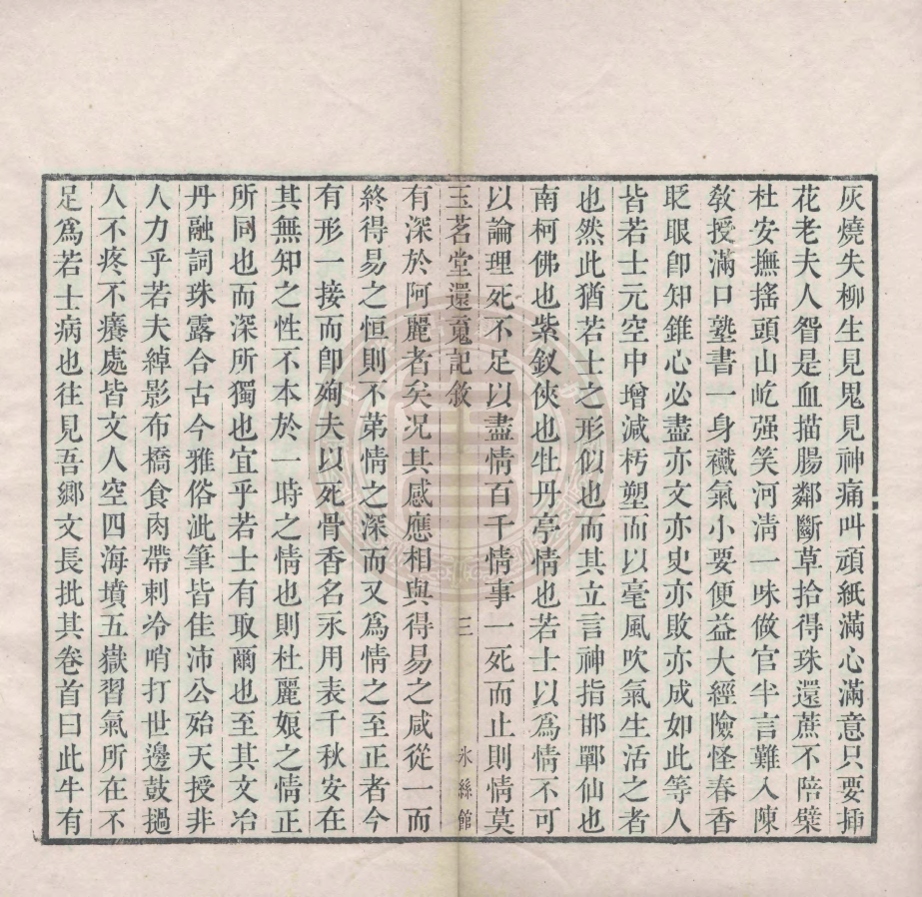 灰燒失柳生見鬼見神痛叫頑紙滿心滿意只要揷
花老夫人眢是血描腸鄰斷草拾得珠還蔗不陪檗
杜安撫搖頭山屹强笑河淸一味做官半言難入陳
敎授滿口塾書一身襶氣小要便益大經險怪春香
眨眼卽知錐心必盡亦文亦史亦敗亦成如此等人
皆若士元空中增減朽塑而以毫風吹氣生活之者
也然此猶若士之形似也而其立言神指邯鄲仙也
南柯佛也紫釵俠也牡丹亭情也若士以爲情不可
以論理死不足以盡情百千情事一死而止則情莫
玉茗堂還䰟記敘
三
冰絲館
有深於阿麗者矣况其感應相與得易之咸從一而
終得易之恒則不第情之深而又爲情之至正者今
有形一接而卽殉夫以死骨香名永用表千秋安在
其無知之性不本於一時之情也則杜麗娘之情正
所同也而深所獨也宜乎若士有取爾也至其文冶
丹融詞珠露合古今雅俗泚筆皆佳沛公殆天授非
人力乎若夫綽影布橋食肉帶刺冷哨打世邊鼓撾
人不疼不癢處皆文人空四海墳五嶽習氣所在不
足爲若士病也往見吾鄕文長批其卷首曰此牛有